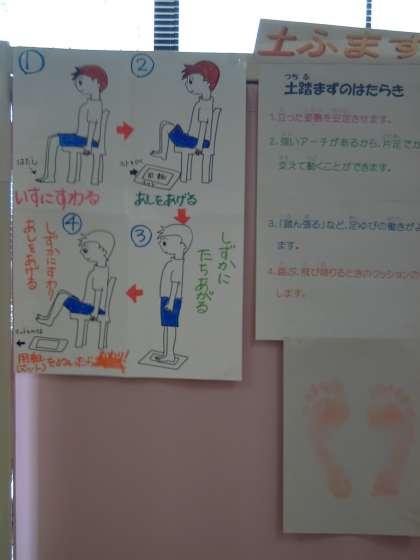 ①
はだし
いすにすわる
②
用紙
あしをあげる
③
しずかに
たちあがる
④
しずかにすわり
あしをあげる
用紙
(マット)をぬいたらおわり!
土ふまず
つち ふ
土踏まずのはたらき
1.立った姿勢を安定させます。
2.強いアーチがあるから、片足でか
支えて動くことができます。
3.「踏ん張る」など、足ゆびの働きがよ
ます。
4.跳ぶ、飛び降りるときのクッションの
します。